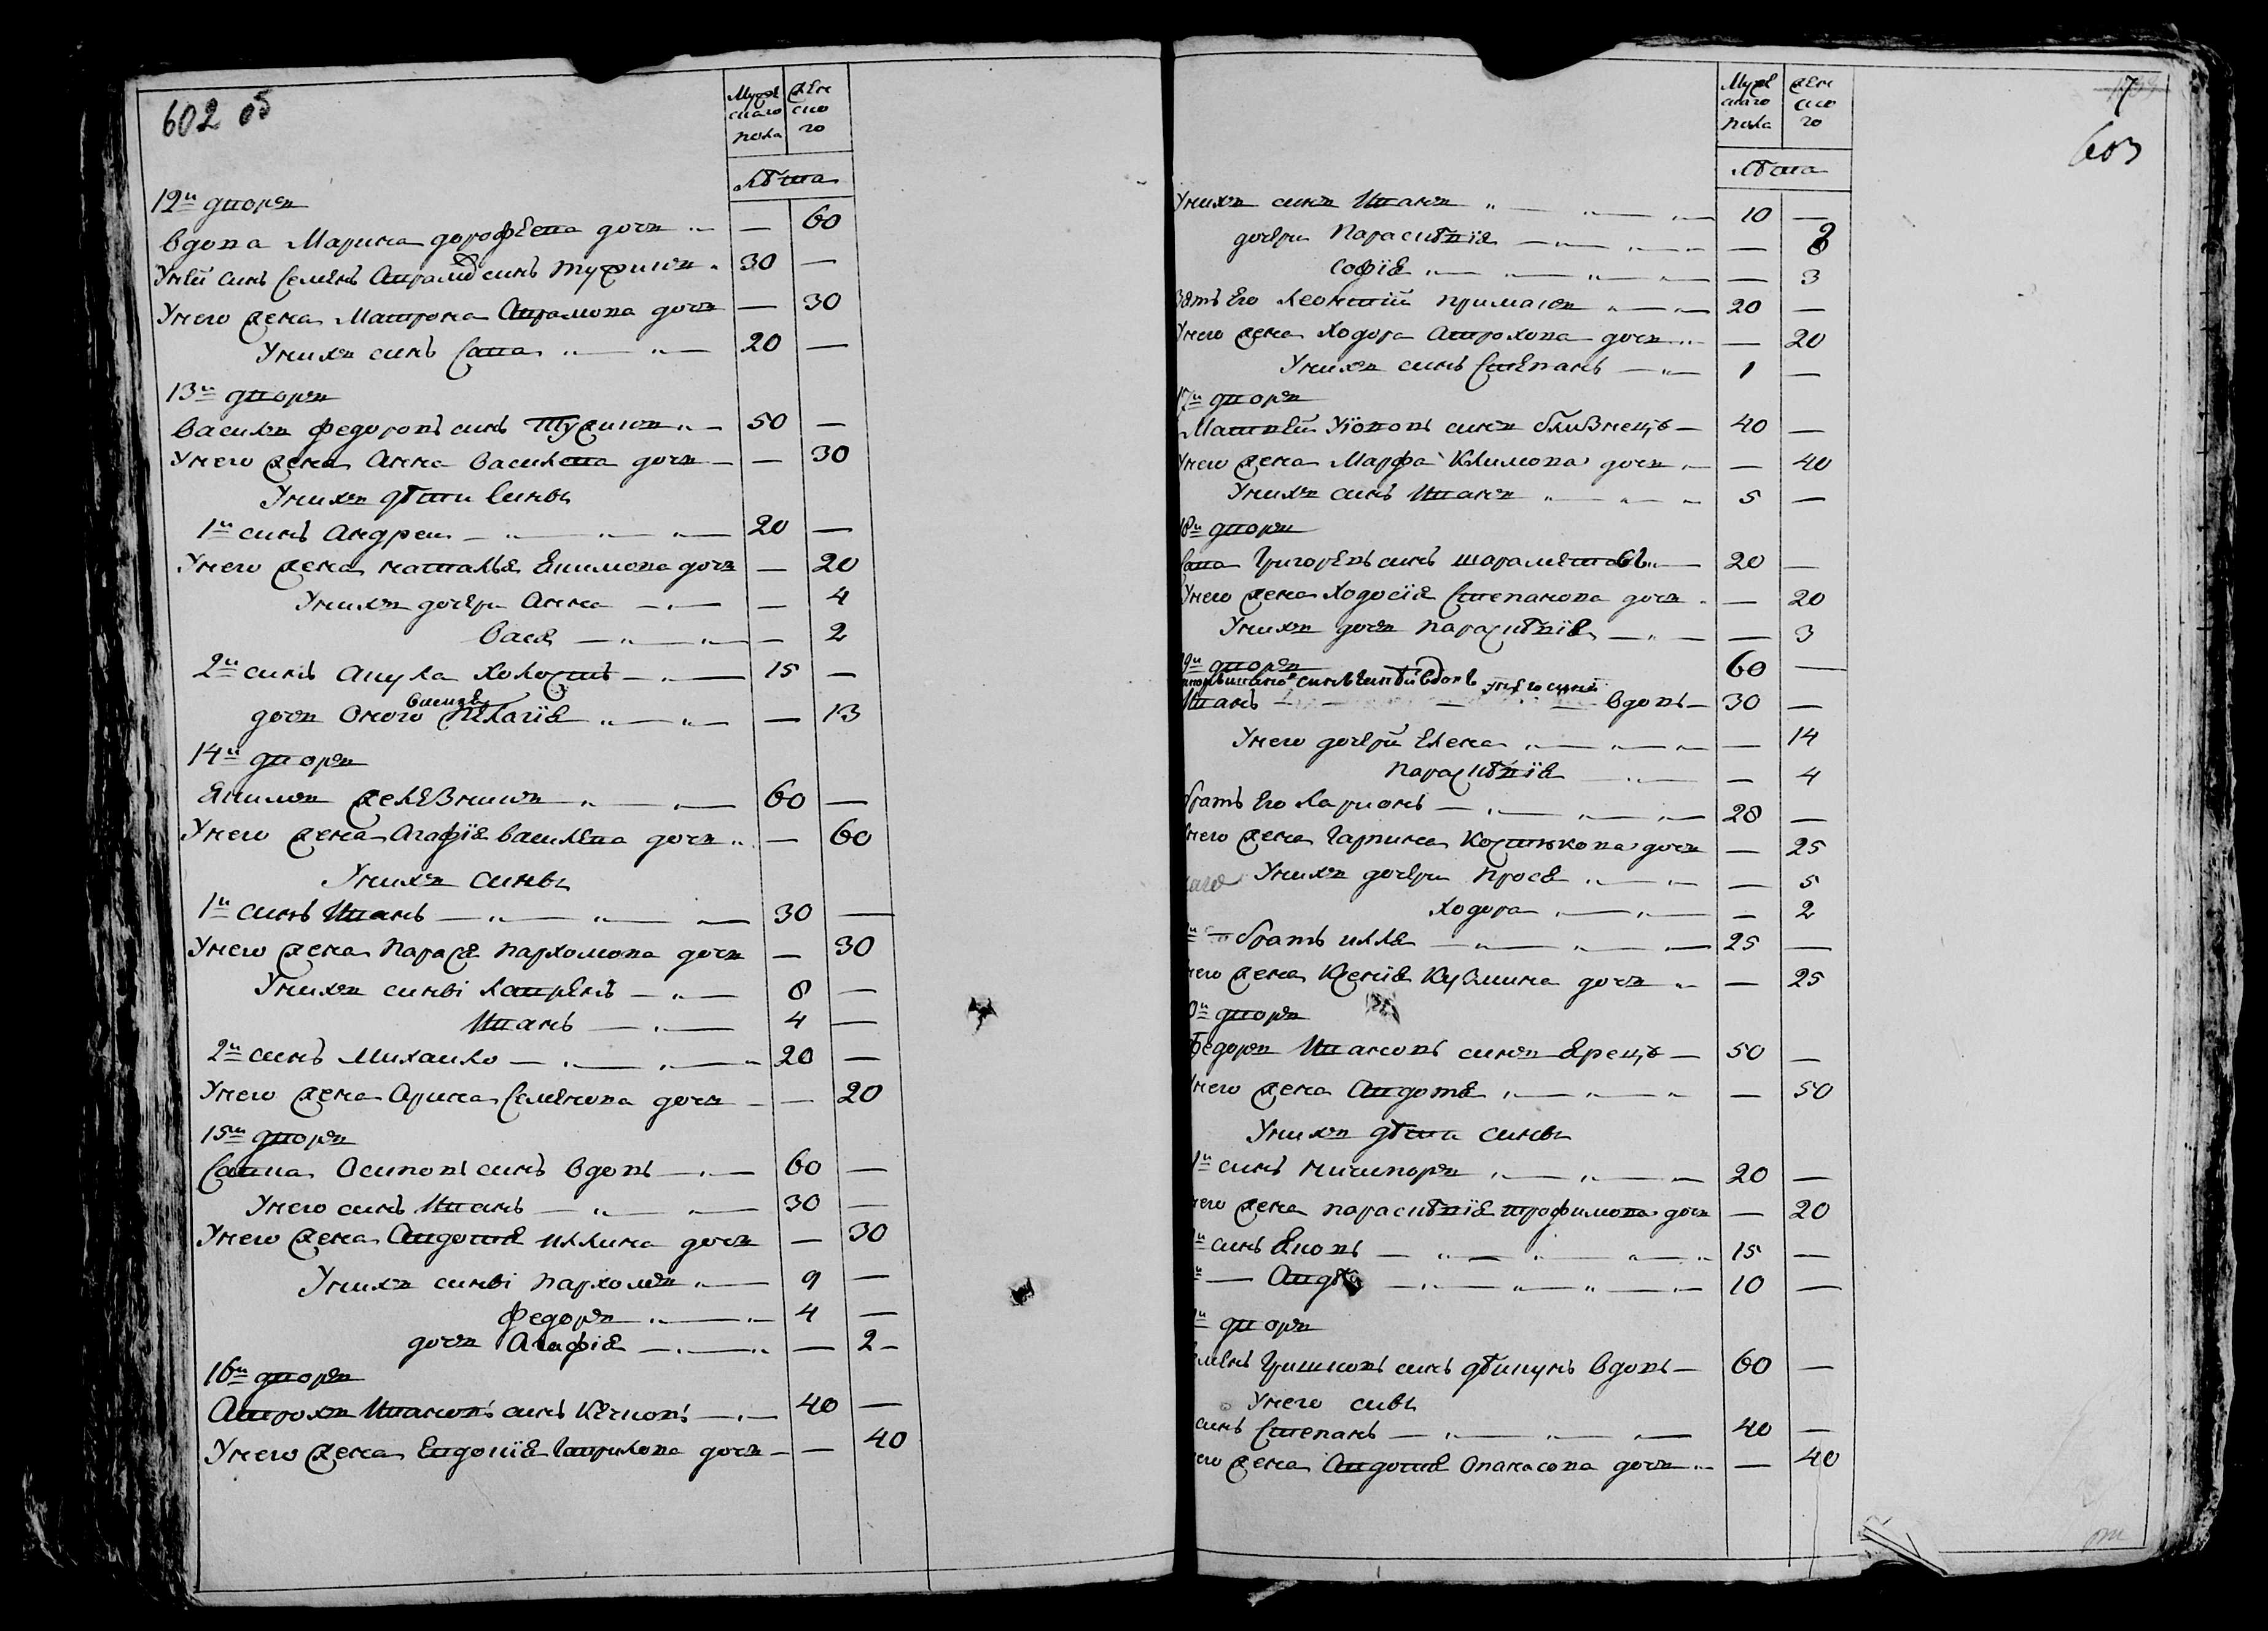 602 об
Мужескаго пола
Женского
Лѣта
12й дворъ
Вдова Марина дорофѣева дочъ — 60
Унеи синъ Семенъ синъ 30 —
Унего жена Матрона дочъ — 30
Унихъ синъ Сава 20 —
13й дворъ
Василъ Федоровъ синъ 50 —
Унего жена Анна Василева дочъ — 30
Унихъ дѣти Синвь
1й синъ Андреи 20 —
Унего жена наталья Якимова дочъ — 20
Унихъ дочери Анна — 4
Вася — 2
2й синъ Холостъ 15 —
дочъ Оного Василя Пелагїя — 13
14й дворъ
Якимъ железникъ 60 —
Унего жена Агафїя Василева дочъ — 60
Унихъ Синвь
1й синъ Иванъ 30 —
Унего жена Парася Пархомова дочъ — 30
Унихъ синві Лаврѣнъ 8 —
Иванъ 4 —
2й синъ Михаило 20 —
Унего жена Арина Семенова дочъ — 20
15й дворъ
Савва Осиповъ синъ Вдовъ 60 —
Унего синъ Иванъ 30 —
Унего жена Авдотя иллина дочъ — 30
Унихъ синві Пархомъ 9 —
Федоръ 4 —
дочъ Агафїя — 2
16й дворъ
Ивановъ синъ 40 —
Унего жена Евдокїя Гаврилова дочъ — 40
7
603
Мужескаго пола
Женского
Лѣта
Унихъ синъ Иванъ 10 —
дочери Парасковїя — 8
Софїя — 3
Зять Его Леонтїй примакъ 20 —
Унего жена Ходора дочъ — 20
Унихъ синъ Степанъ 1 —
17й дворъ
Матвей синъ близнецъ 40 —
Унего жена Марфа Климова дочъ — 40
Унихъ синъ Иванъ 5 —
18й дворъ
Сава Григоревъ синъ 20 —
Унего жена Ходосїя Степанова дочъ — 20
Унихъ дочъ Парасковїя — 3
19й дворъ 60 —
синъ вдовъ унего синъ
Иванъ Вдовъ 30 —
Унего дочери Елена — 14
Парасковїя — 4
братъ Его Ларионъ 28 —
Унего жена Гарпина Костюкова дочъ — 25
Унихъ дочери Прося — 5
Ходора — 2
братъ илля 25 —
Унего жена Ксенїя Кузмина дочъ — 25
20й дворъ
Федоръ Ивановъ синъ 50 —
Унего жена Авдотя — 50
Унихъ дѣти синвь
1й синъ ничипоръ 20 —
Унего жена парасковїя трофимова дочъ — 20
синъ Яковъ 15 —
10 —
дворъ
Семенъ Гришковъ синъ Вдовъ 60 —
Унего сивь
синъ Степанъ 40 —
Унего жена Авдотя Опанасова дочъ — 40